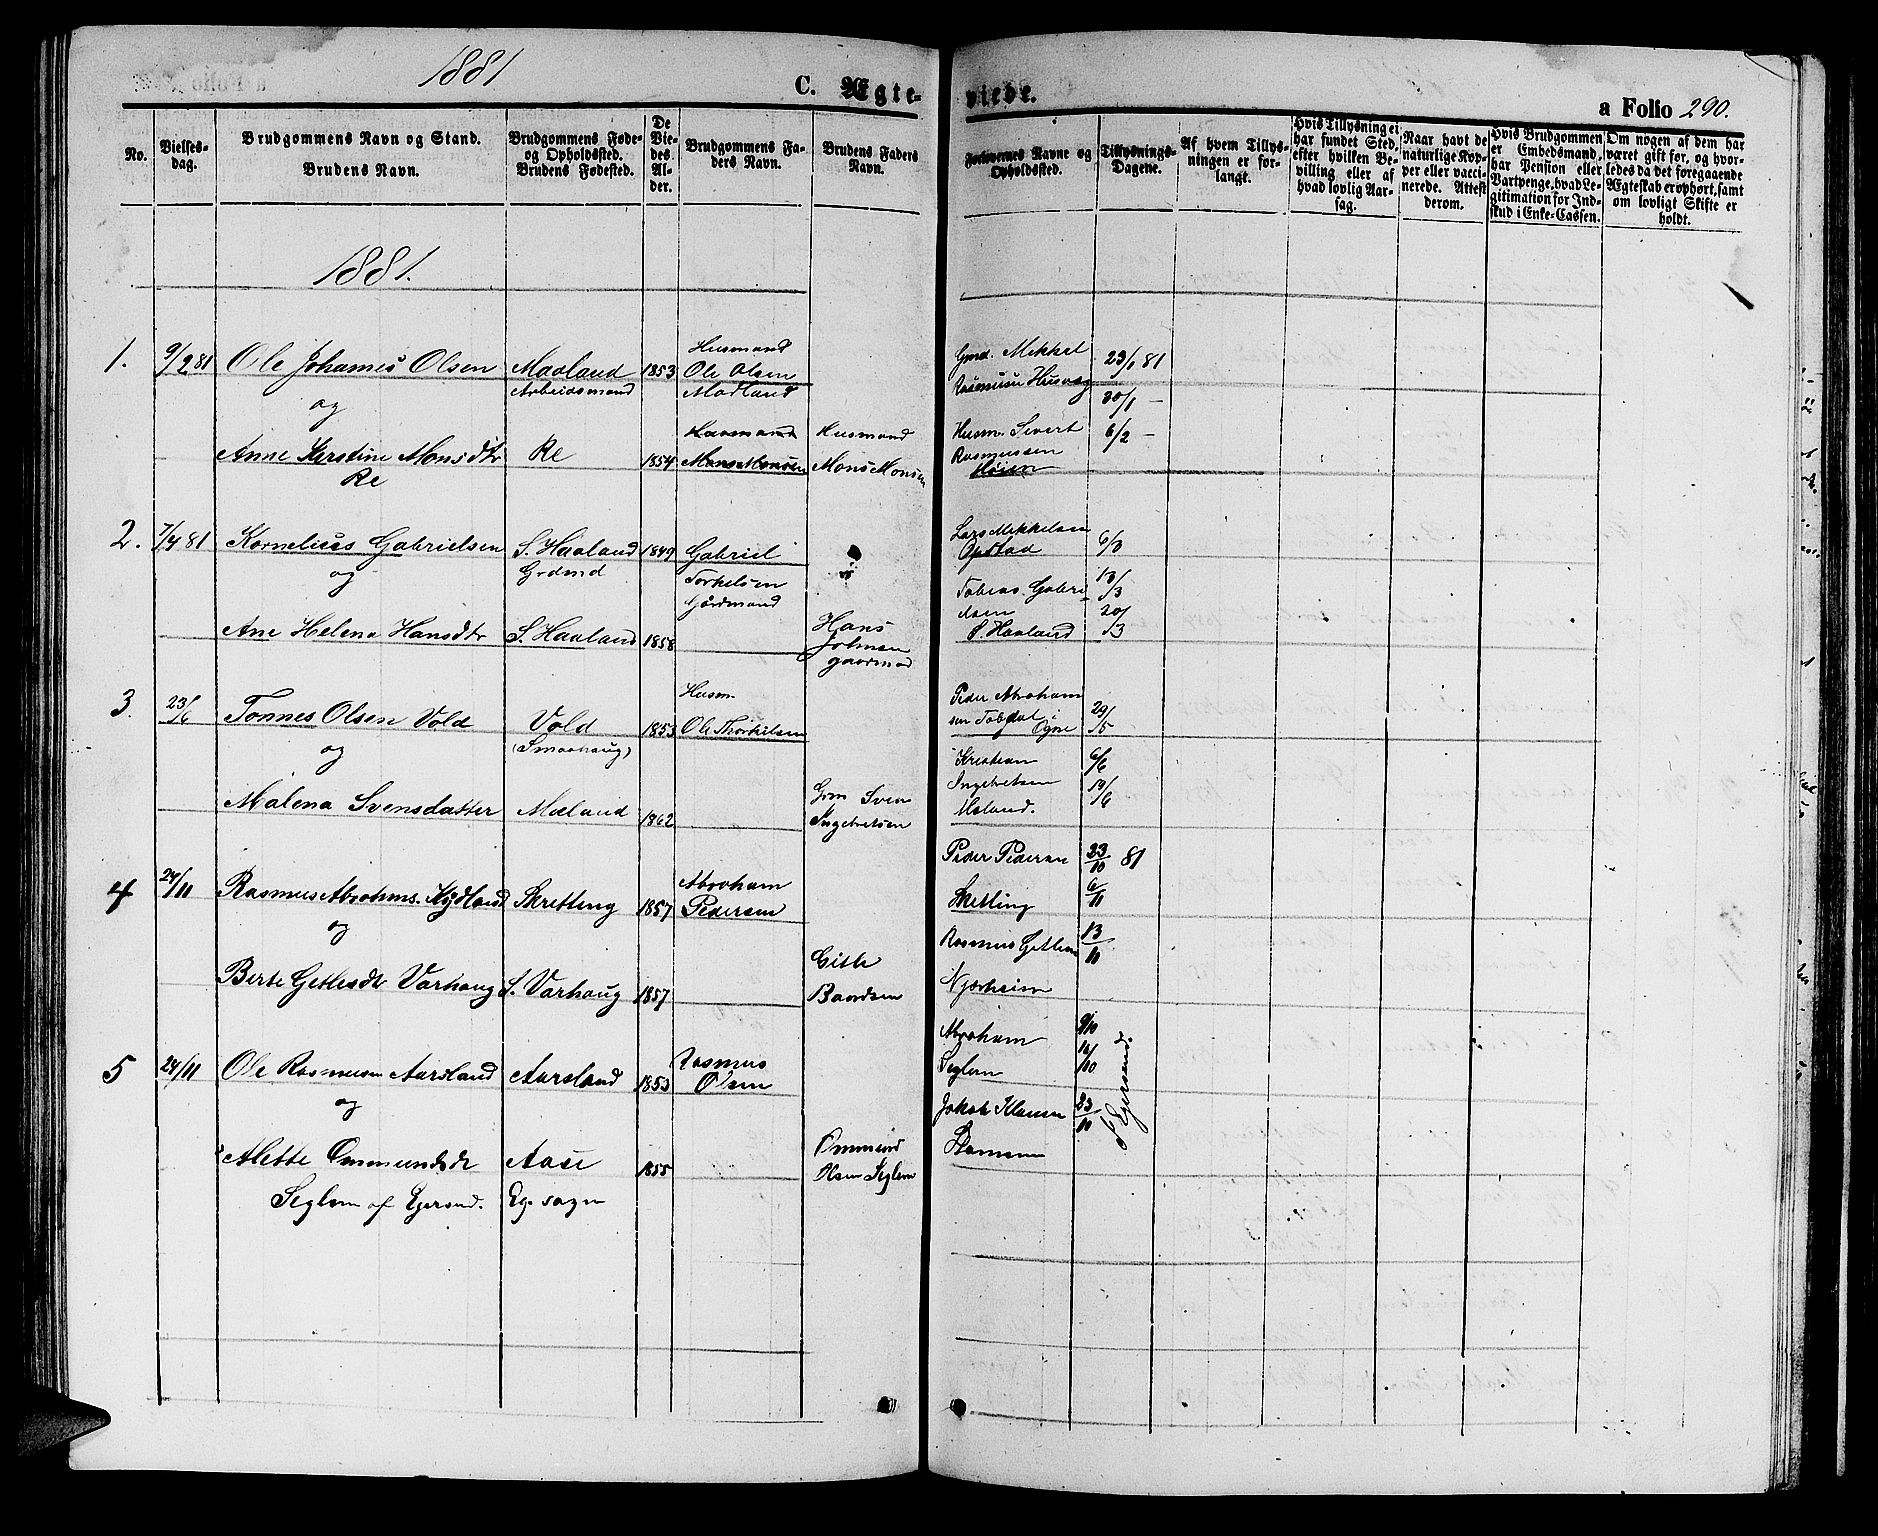 1881
C. Ægte-
viede.
a Folio 290.
No.
Vielses-
dag.
Brudgommens Navn og Stand.
Brudens Navn.
Brudgommens Føde-
og Opholdssted.
Brudens Fødested.
De
Vie-
des
Al-
der.
Brudgommens Fa-
ders Navn.
Brudens Faders
Navn.
Forlovernes Navne og
Opholdssted.
Tillysnings-
Dagene.
Af hvem Tillys-
ningen er for-
langt.
Hvis Tillysning ei
har fundet Sted,
efter hvilken Be-
villing eller af
hvad lovlig Aar-
sag.
Naar havt de
naturlige Kop-
per eller vacci-
nerede. Attest
derom.
Hvis Brudgommen
er Embedsmand,
har Pension eller
Vartpenge, hvad Le-
gitimation for Ind-
skud i Enke-Cassen.
Om nogen af dem har
været gift før, og hvor-
ledes da det foregaaende
Ægteskab er ophørt, samt
om lovligt Skifte er
holdt.
1881.
1. 9/2 81 Ole Johannes Olsen Maaland 1853 Husmand
Ole Olsen
Madland
Arbeidsmand
og
Anne Kerstine Monsdtr Re 1854 Husmand
Mons Monsen
Husmand
Mons Monsen
Re
Gmd. Mikkel
Rasmusen Husvæg
Husm. Sivert
Rasmussen
Høien
23/1 81
30/1 —
6/2 —
2. 7/4 81 Kornelius Gabrielsen S. Haaland 1849 Gabriel
Grdmd
Torkelsen
Gårdmand
og
Ane Helena Hansdtr S. Haaland 1858 Hans
gaardmad
Lars Mikkelsen
Opstad
Tobias Gabri-
elsen
S. Haaland
6/3
13/3
20/3
3. 23/6 Tønnes Olsen Vold Vold 1853 Husm
Ole Thorkelsen
(Smaahaug)
og
Malena Svensdatter Mæland 1862 Grm Sven
Ingebretsen
Peder Abraham
sen Tobdal i
Ogne
Kristian
Ingebretsen
Mæland.
29/5
6/6
19/6
4 24/11 Rasmus Abrahms. Kydland Skretting 1857 Abraham
Pedersen
og
Berte Getlesdtr Varhaug S. Varhaug 1857 Gitle
Baardsen
Peder Pedersen
Sketting
Rasmus Getlesen
Njærheim
23/10 81
6/11
13/11
5 24/11 Ole Rasmusen Aarsland Aarsland 1853 Rasmus
Olsen
og
Alette Ommundsdr Aase 1855 Ommund
Olsen Seglem
Seglem af Egersund. Eg. sogn
Abraham
Seglem
Jakob Klausen
9/10
16/10
23/10
i Egersund.